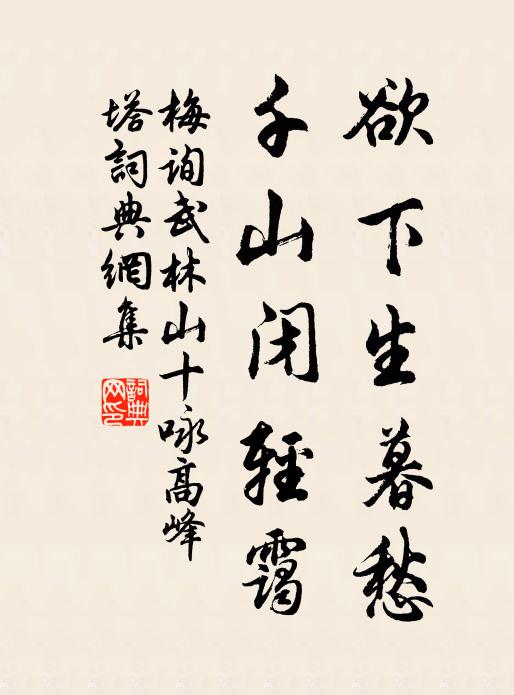 欲下生暮愁
千山闭輕靄
梅询武林山十咏高峰
塔詞典網集
詞典
网印